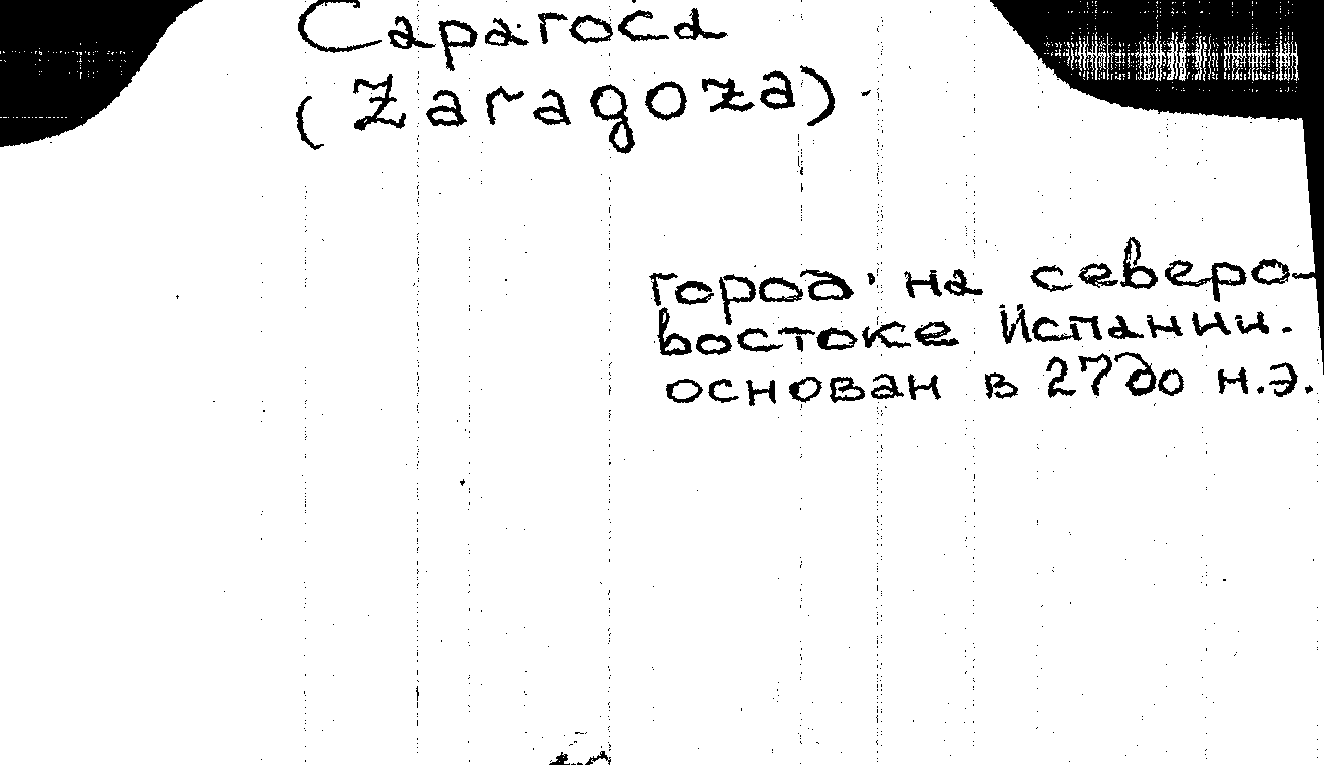 Сарагоса
(Zaragoza).
город на северо-
востоке Испании.
основан в 27 до н.э.